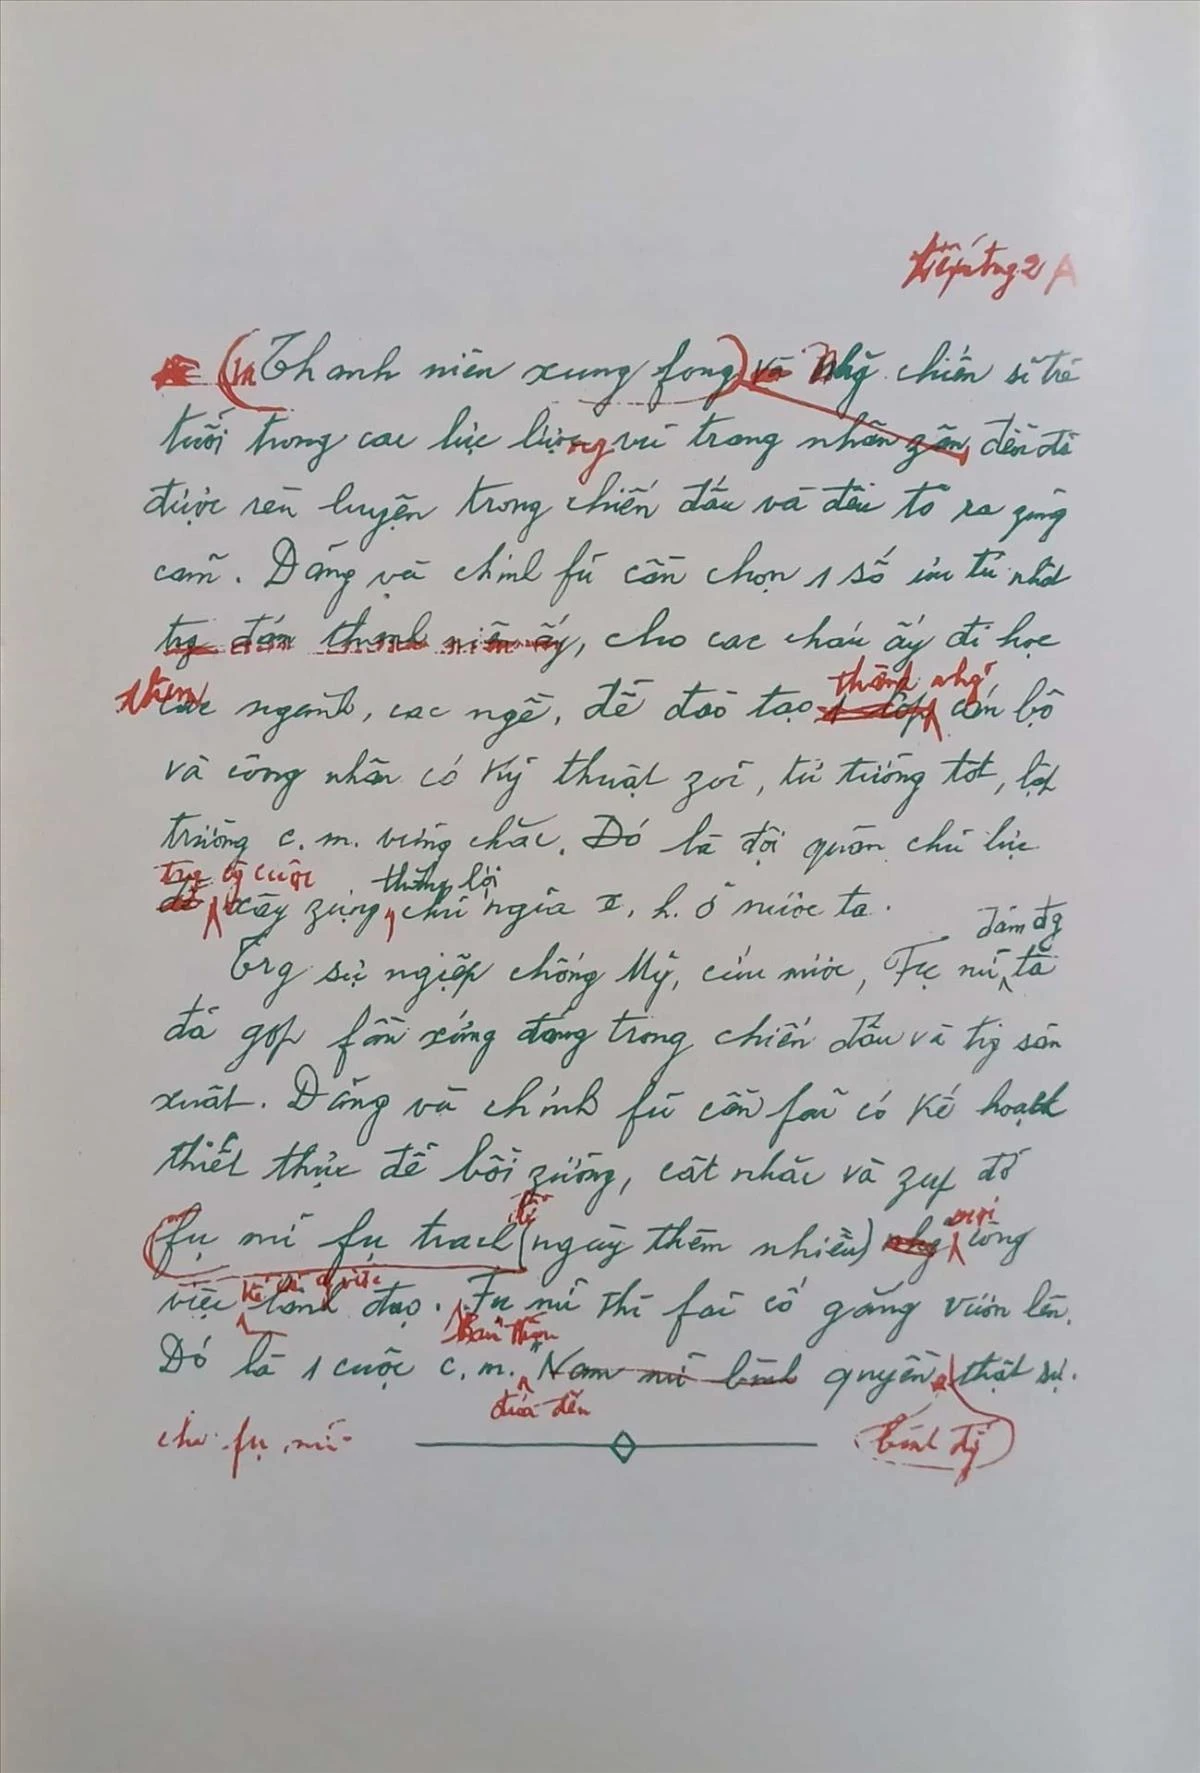 tiếp trang 2 A
(Thanh niên xung fong) và Nhg chiến sĩ trẻ
tuổi trong các lực lượng vũ trang nhân zân, đều đã
được rèn luyện trong chiến đấu và đều tỏ ra zũng
cảm. Đảng và chính fủ cần chọn 1 số ưu tú nhất
trg đám thanh niên ấy, cho các cháu ấy đi học
thêm
các ngành, các ngề, để đào tạo 1 lớp cán bộ
thành nhg
và công nhân có kỹ thuật zỏi, tư tưởng tốt, lập
trường c.m. vững chắc. Đó là đội quân chủ lực
trg cuộc thắng lợi
để xây zựng chủ ngĩa x.h. ở nước ta.
đảm đg
Trg sự ngiệp chống Mỹ, cứu nước, Fụ nữ ta
đã góp fần xứng đáng trong chiến đấu và trg sản
xuất. Đảng và chính fủ cần fải có kế hoạch
thiết thực để bồi zưỡng, cất nhắc và zúp đỡ
để mọi
fụ nữ fụ trách (ngày thêm nhiều) nhg công
việc lãnh đạo. Fụ nữ thì fải cố gắng vươn lên.
kể cả việc
Bản thân
Đó là 1 cuộc c.m. "Nam nữ bình quyền" thật sự.
đưa đến
cho fụ nữ bình đg